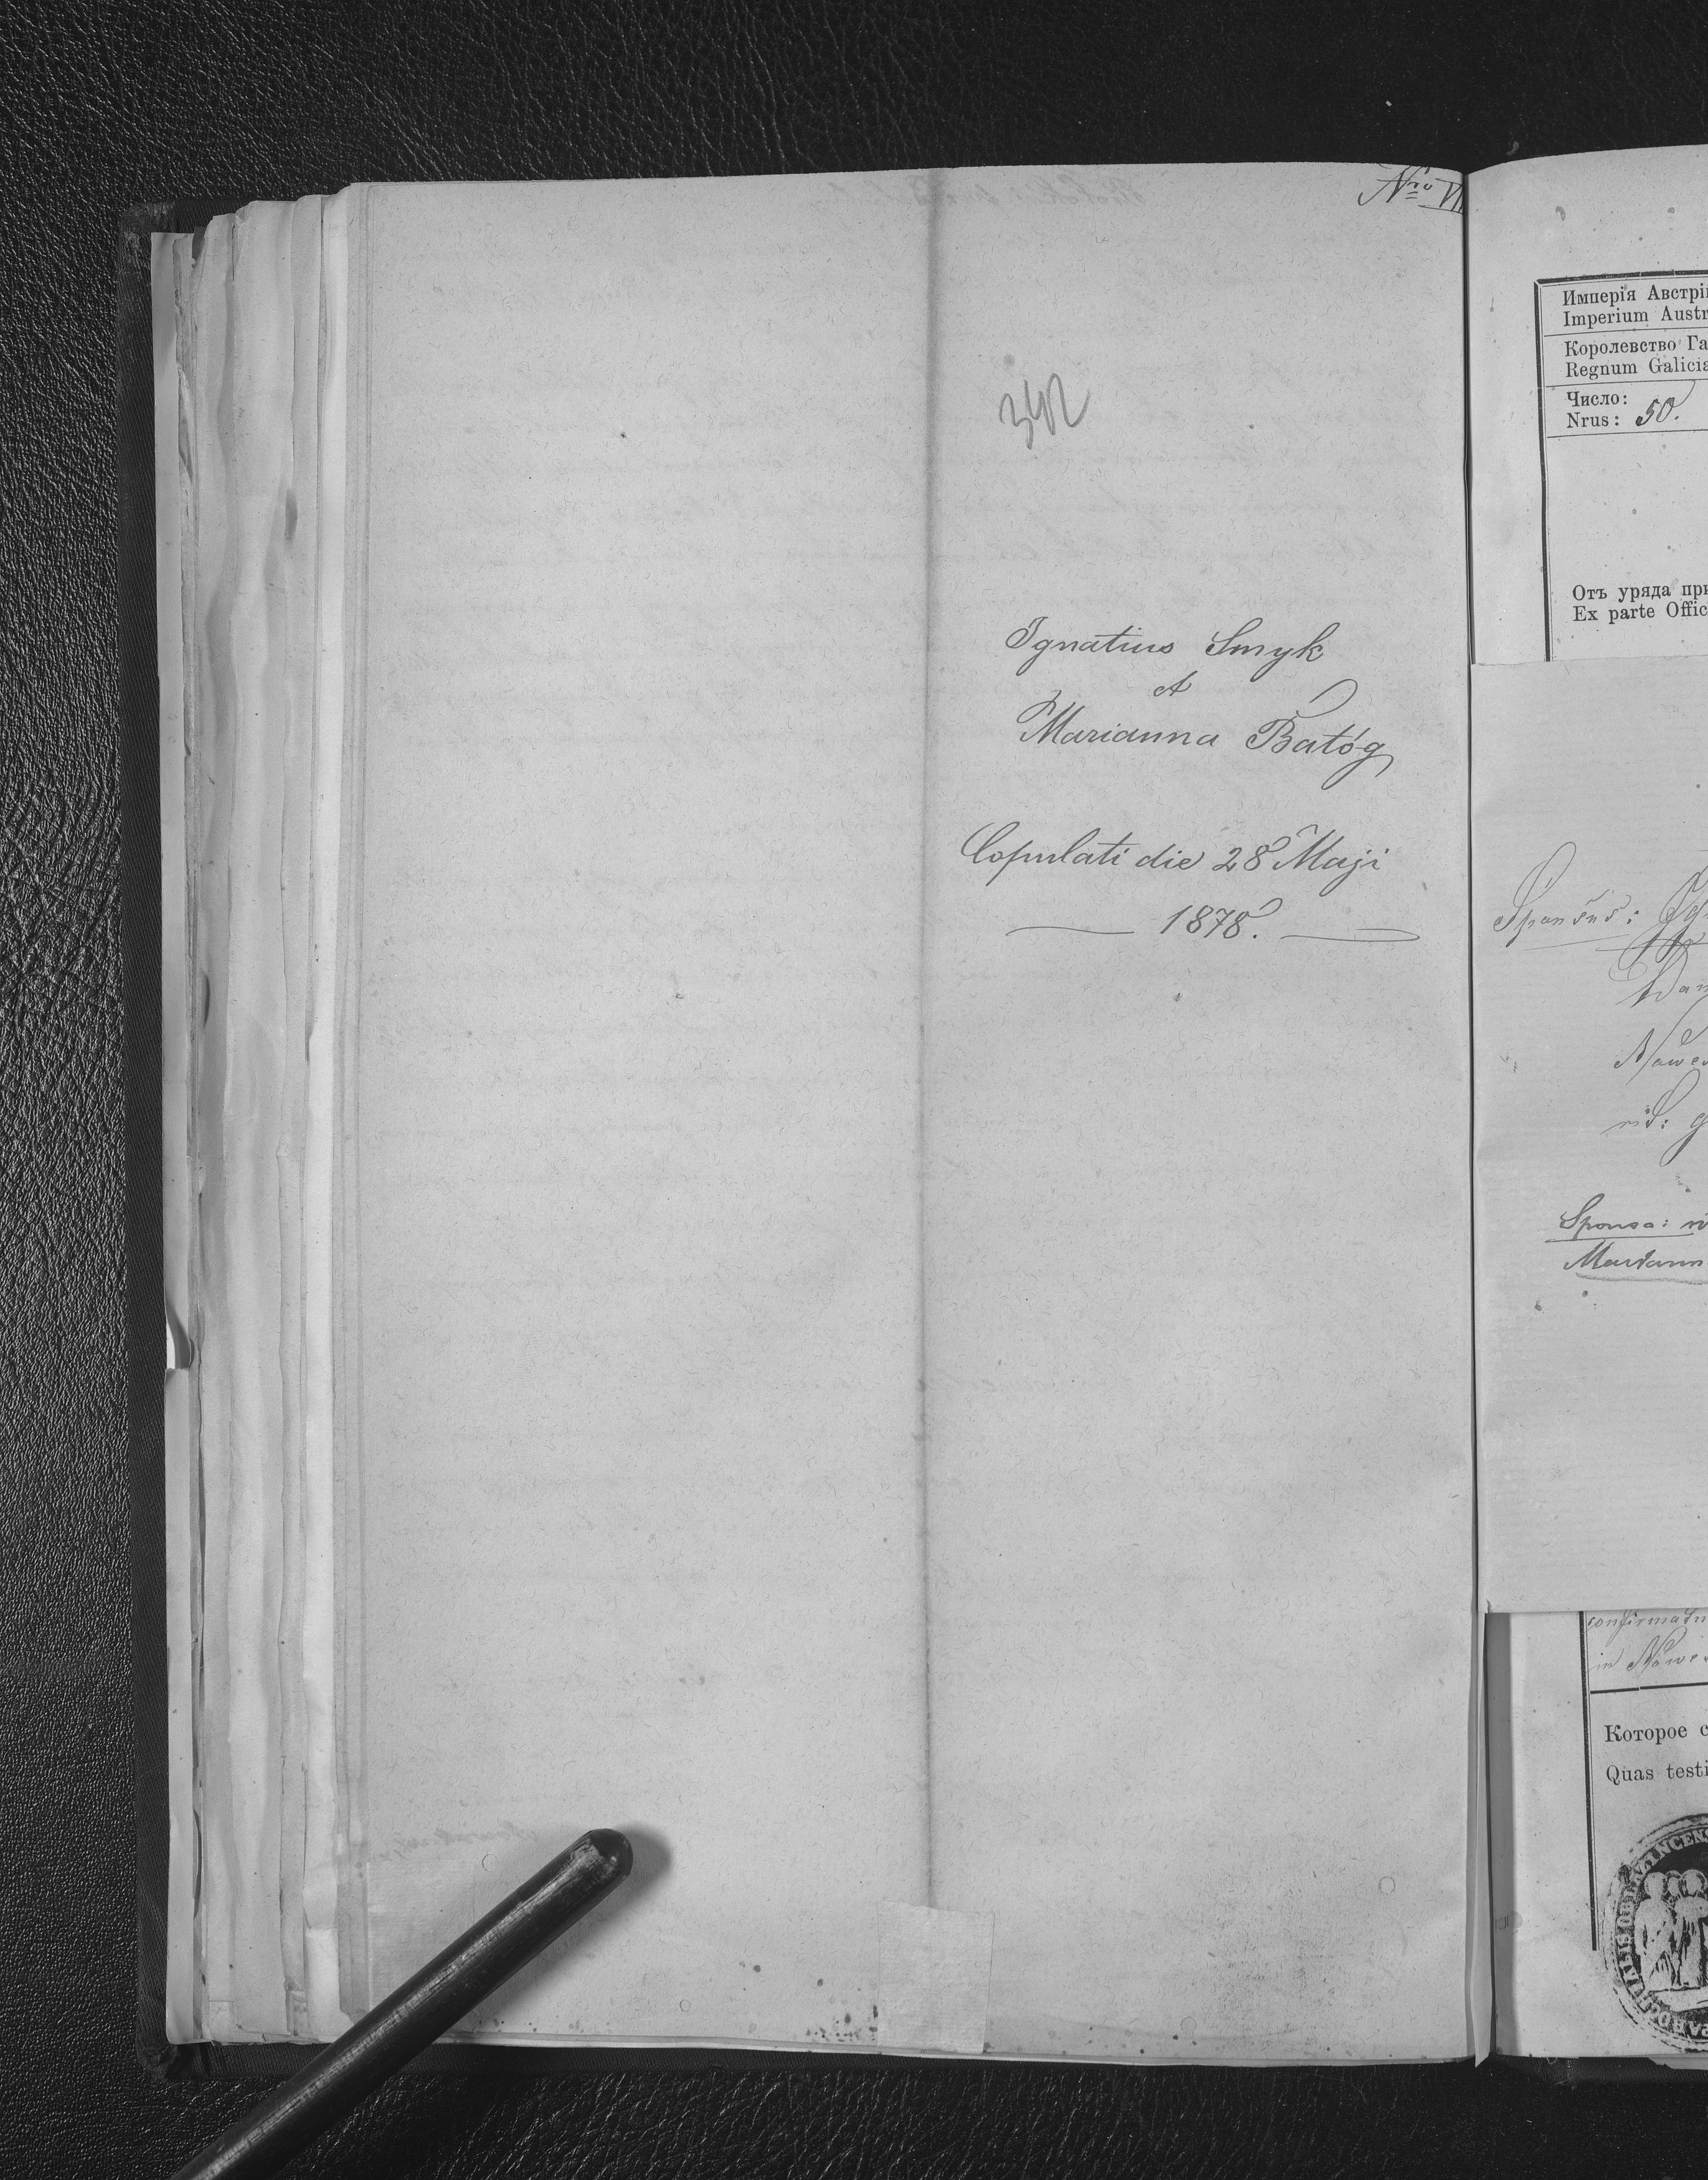 Nro VII
342
Ignatius Smyk
et
Marianna Batóg
Copulati die 28 Maji
1878.
Имперія Австрі
Imperium Austr
Королевство Га
Regnum Galicia
Число:
Nrus: 50.
Отъ уряда при
Ex parte Offic
Sponsus:
Sponsa:
Mariann
confirmatu
in Nowe
Которое с
Quas testi